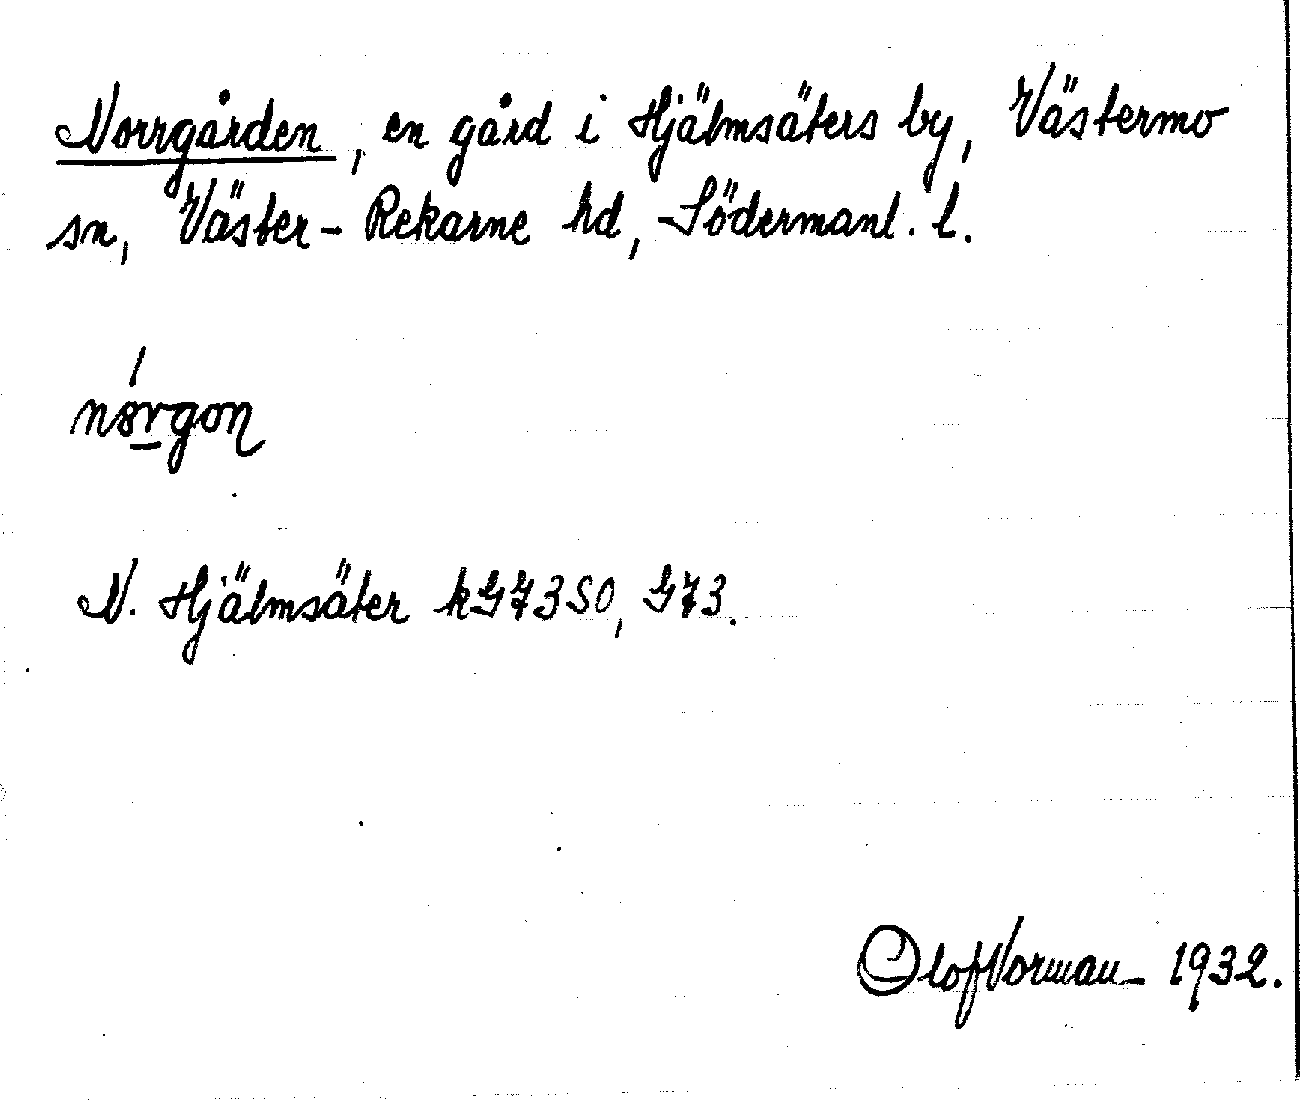 Norrgården, en gård i Hjälmsäters by, Västermo
sn, Väster-Rekarne hd, Södermanl. l.
nørgon
N. Hjälmsäter kG7350, G73.
Olof Norman 1932.